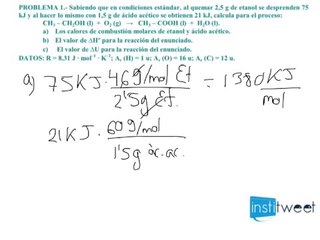 PROBLEMA 1.- Sabiendo que en condiciones estándar, al quemar 2,5 g de etanol se desprenden 75
kJ y al hacer lo mismo con 1,5 g de ácido acético se obtienen 21 kJ, calcula para el proceso:
CH₃ – CH₂OH (l) + O₂ (g) → CH₃ – COOH (l) + H₂O (l).
a) Los calores de combustión molares de etanol y ácido acético.
b) El valor de ΔHº para la reacción del enunciado.
c) El valor de ΔU para la reacción del enunciado.
DATOS: R = 8,31 J · mol⁻¹ · K⁻¹; Aᵣ (H) = 1 u; Aᵣ (O) = 16 u; Aᵣ (C) = 12 u.
a) 75KJ · 46g/mol Et / 2'5g Et. = 1380 KJ / mol
21KJ · 60g/mol / 1'5g àc.ac.
institweet